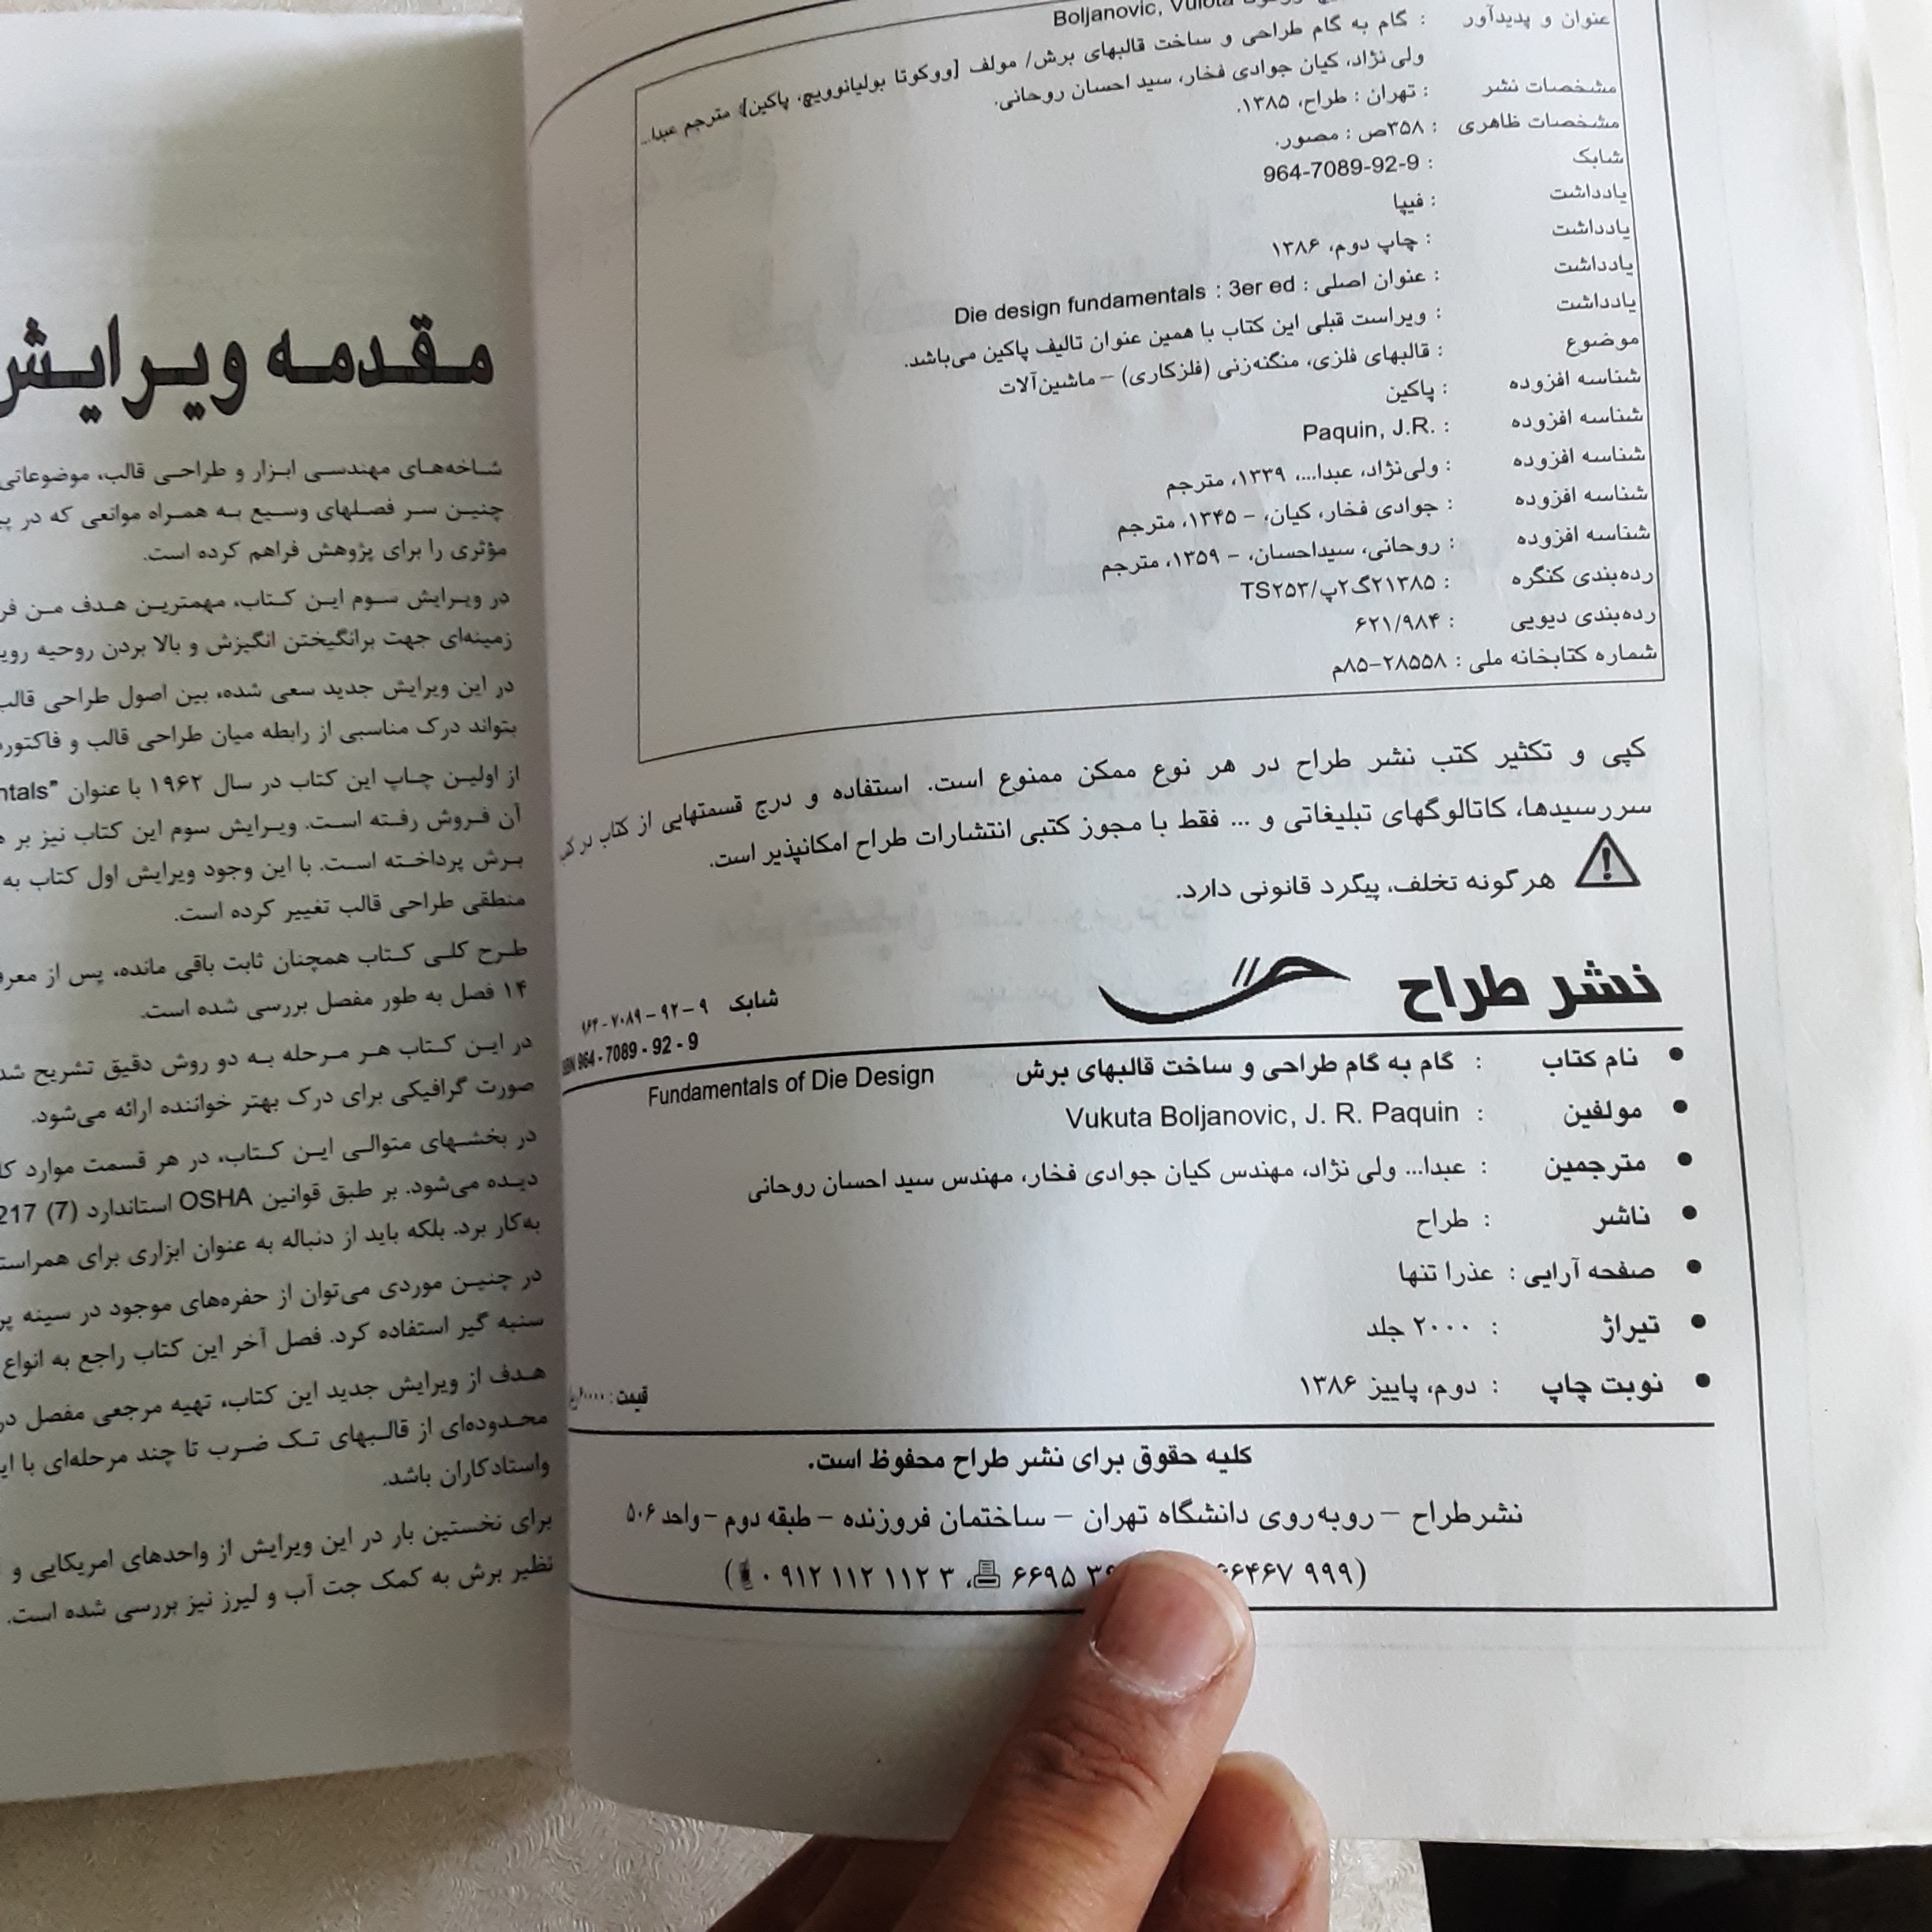 Boljanovic, Vulota
عنوان و پدیدآور : گام به گام طراحی و ساخت قالبهای برش/ مولف [ووکوتا بولیانوویچ، پاکین]؛ مترجم عبدا...
ولی نژاد، کیان جوادی فخار، سید احسان روحانی.
مشخصات نشر : تهران : طراح، ۱۳۸۵.
مشخصات ظاهری : ۳۵۸ص : مصور.
شابک : 964-7089-92-9
یادداشت : فیپا
یادداشت : چاپ دوم، ۱۳۸۶
یادداشت : عنوان اصلی : Die design fundamentals : 3er ed
یادداشت : ویراست قبلی این کتاب با همین عنوان تالیف پاکین می‌باشد.
موضوع : قالبهای فلزی، منگنه‌زنی (فلزکاری) – ماشین‌آلات
شناسه افزوده : پاکین
شناسه افزوده : Paquin, J.R.
شناسه افزوده : ولی‌نژاد، عبدا...، ۱۳۳۹، مترجم
شناسه افزوده : جوادی فخار، کیان، – ۱۳۴۵، مترجم
شناسه افزوده : روحانی، سیداحسان، – ۱۳۵۹، مترجم
رده‌بندی کنگره : ۲۱۳۸۵گ۲پ/TS۲۵۳
رده‌بندی دیویی : ۶۲۱/۹۸۴
شماره کتابخانه ملی : ۲۸۵۵۸–۸۵م
کپی و تکثیر کتب نشر طراح در هر نوع ممکن ممنوع است. استفاده و درج قسمتهایی از کتاب در
سررسیدها، کاتالوگهای تبلیغاتی و ... فقط با مجوز کتبی انتشارات طراح امکانپذیر است.
هر گونه تخلف، پیگرد قانونی دارد.
نشر طراح
شابک ۹ – ۹۲ – ۷۰۸۹ – ۹۶۴
964 - 7089 - 92 - 9
• نام کتاب : گام به گام طراحی و ساخت قالبهای برش Fundamentals of Die Design
• مولفین : Vukuta Boljanovic, J. R. Paquin
• مترجمین : عبدا... ولی نژاد، مهندس کیان جوادی فخار، مهندس سید احسان روحانی
• ناشر : طراح
• صفحه آرایی : عذرا تنها
• تیراژ : ۲۰۰۰ جلد
• نوبت چاپ : دوم، پاییز ۱۳۸۶
قیمت :
کلیه حقوق برای نشر طراح محفوظ است.
نشرطراح – روبه‌روی دانشگاه تهران – ساختمان فروزنده – طبقه دوم – واحد ۵۰۶
(۹۹۹ ۶۶۴۶۷ ۶۶۹۵ ،۰۹۱۲ ۱۱۲ ۱۱۲ ۳)
مقدمه ویرایش
شاخه‌های مهندسی ابزار و طراحی قالب، موضوعاتی
چنین سر فصلهای وسیع به همراه موانعی که در
مؤثری را برای پژوهش فراهم کرده است.
در ویرایش سوم این کتاب، مهمترین هدف من
زمینه‌ای جهت برانگیختن انگیزش و بالا بردن روحیه
در این ویرایش جدید سعی شده، بین اصول طراحی قالب
بتواند درک مناسبی از رابطه میان طراحی قالب و
از اولین چاپ این کتاب در سال ۱۹۶۲ با عنوان
آن فروش رفته است. ویرایش سوم این کتاب نیز بر
برش پرداخته است. با این وجود ویرایش اول کتاب به
منطقی طراحی قالب تغییر کرده است.
طرح کلی کتاب همچنان ثابت باقی مانده، پس از
۱۴ فصل به طور مفصل بررسی شده است.
در این کتاب هر مرحله به دو روش دقیق تشریح
صورت گرافیکی برای درک بهتر خواننده ارائه می‌شود.
در بخشهای متوالی این کتاب، در هر قسمت موارد
دیده می‌شود. بر طبق قوانین OSHA استاندارد (7) 217
به‌کار برد. بلکه باید از دنباله به عنوان ابزاری برای
در چنین موردی می‌توان از حفره‌های موجود در سینه
سنبه گیر استفاده کرد. فصل آخر این کتاب راجع به انواع
هدف از ویرایش جدید این کتاب، تهیه مرجعی مفصل
محدوده‌ای از قالبهای تک ضرب تا چند مرحله‌ای با
واستادکاران باشد.
برای نخستین بار در این ویرایش از واحدهای امریکایی و
نظیر برش به کمک جت آب و لیرز نیز بررسی شده است.